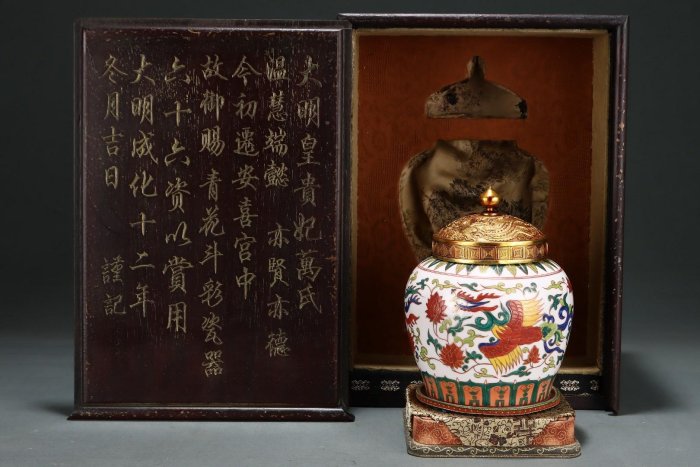 大明皇貴妃萬氏
温慧端懿 亦賢亦德
今初遷安喜宮中
故御賜青花斗彩瓷器
六十六资以赏用
大明成化十二年
冬月吉日 謹記